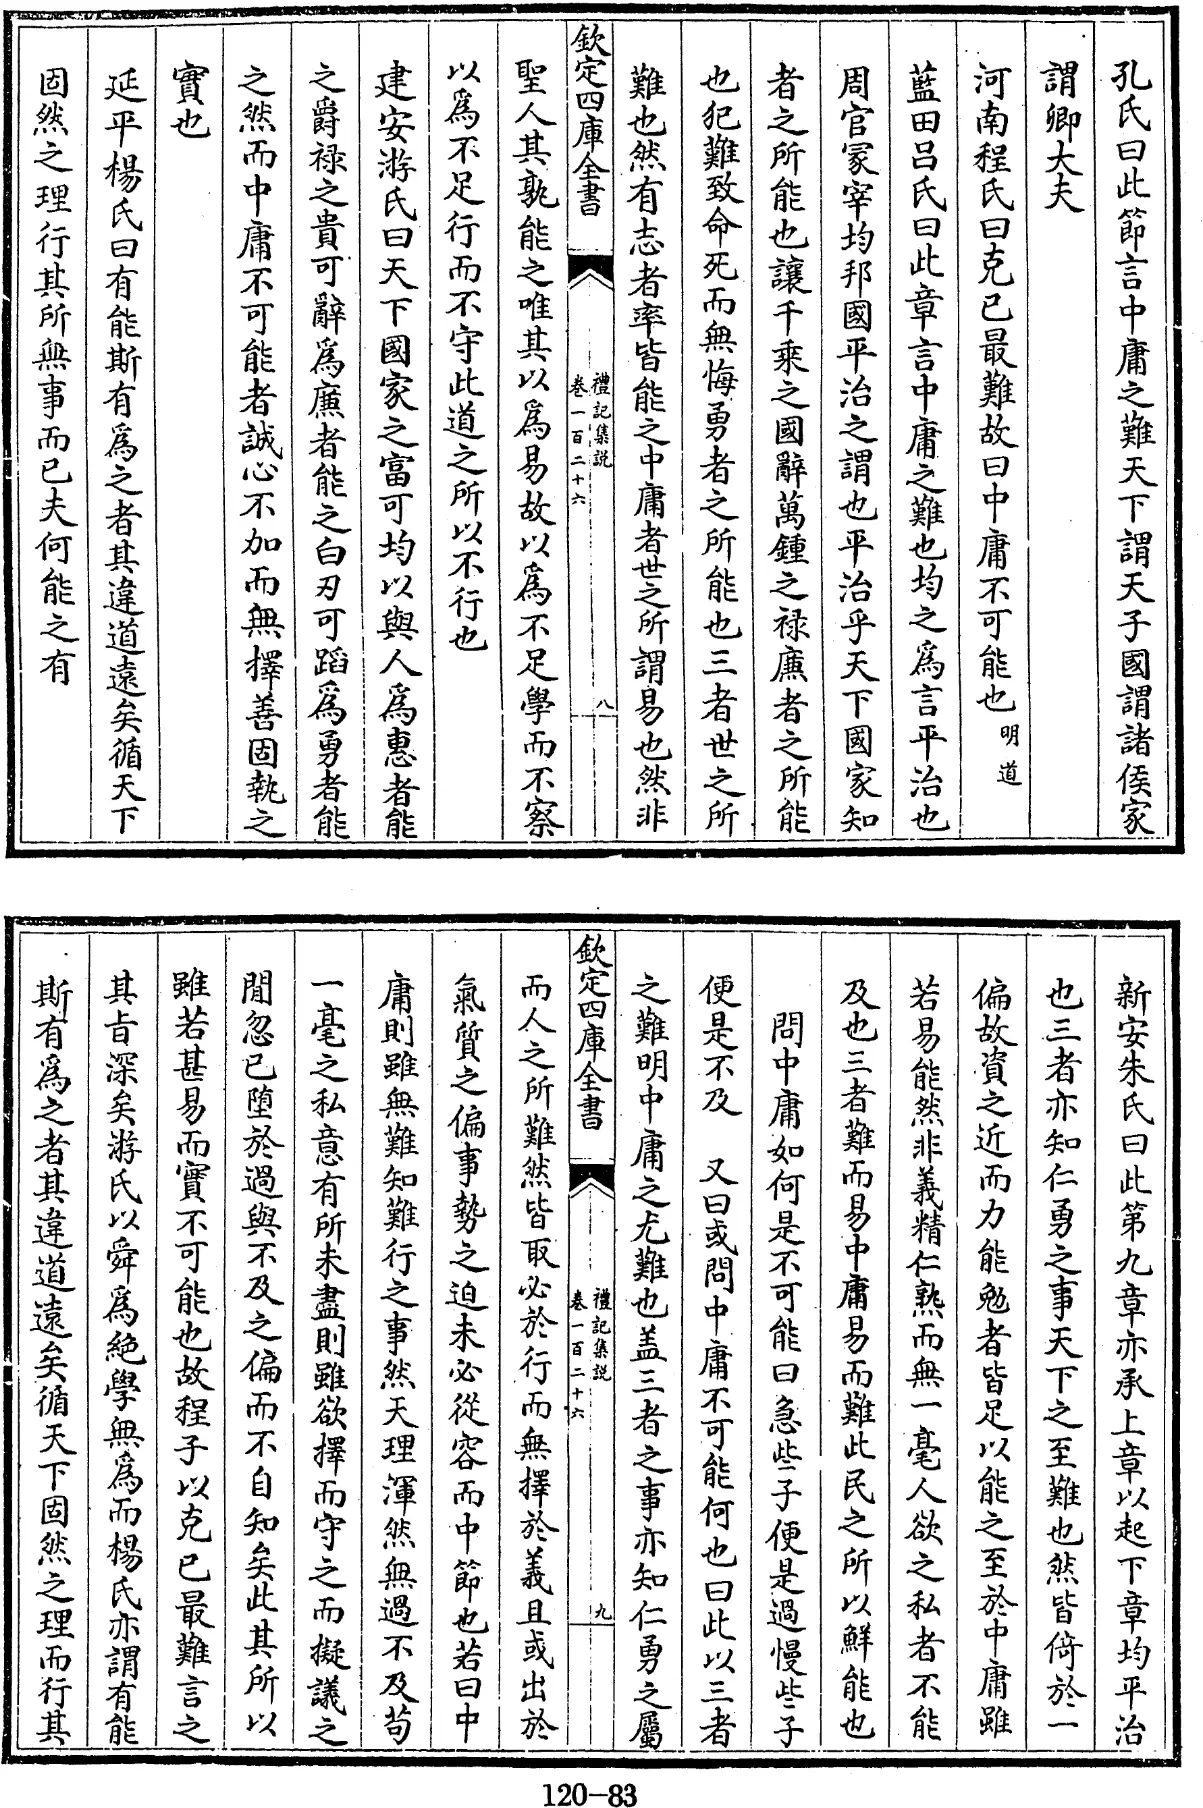 孔氏曰此節言中庸之難天下謂天子國謂諸侯家
謂卿大夫
河南程氏曰克已最難故曰中庸不可能也明道
藍田呂氏曰此章言中庸之難也均之為言平治也
周官冡宰均邦國平治之謂也平治乎天下國家知
者之所能也讓千乘之國辭萬鍾之禄廉者之所能
也犯難致命死而無悔勇者之所能也三者世之所
難也然有志者率皆能之中庸者世之所謂易也然非
欽定四庫全書
禮記集説
卷一百二十六
八
聖人其孰能之唯其以為易故以為不足學而不察
以為不足行而不守此道之所以不行也
建安游氏曰天下國家之富可均以與人為惠者能
之爵禄之貴可辭為廉者能之白刃可蹈為勇者能
之然而中庸不可能者誠心不加而無擇善固執之
實也
延平楊氏曰有能斯有為之者其違道遠矣循天下
固然之理行其所無事而已夫何能之有
新安朱氏曰此第九章亦承上章以起下章均平治
也三者亦知仁勇之事天下之至難也然皆倚於一
偏故資之近而力能勉者皆足以能之至於中庸雖
若易能然非義精仁熟而無一毫人欲之私者不能
及也三者難而易中庸易而難此民之所以鮮能也
問中庸如何是不可能曰急些子便是過慢些子
便是不及　又曰或問中庸不可能何也曰此以三者
之難明中庸之尤難也盖三者之事亦知仁勇之屬
欽定四庫全書
禮記集説
卷一百二十六
九
而人之所難然皆取必於行而無擇於義且或出於
氣質之偏事勢之迫未必從容而中節也若曰中
庸則雖無難知難行之事然天理渾然無過不及苟
一毫之私意有所未盡則雖欲擇而守之而擬議之
間忽已墮於過與不及之偏而不自知矣此其所以
雖若甚易而實不可能也故程子以克已最難言之
其旨深矣游氏以舜為絶學無為而楊氏亦謂有能
斯有為之者其違道遠矣循天下固然之理而行其
120-83